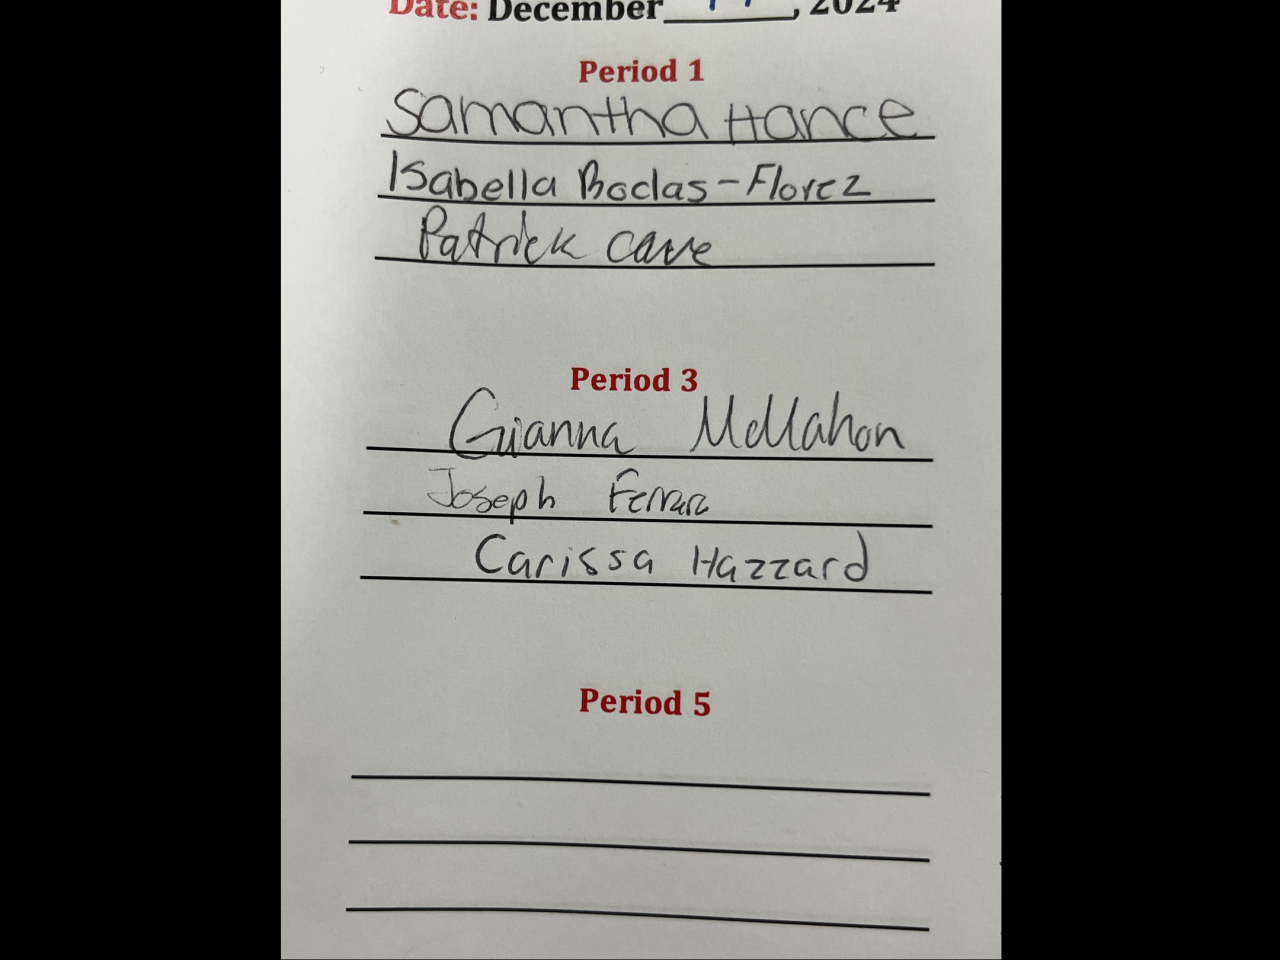 Date: December , 2024
Period 1
Samantha Hance
Isabella Boclas-Florez
Patrick Cave
Period 3
Gianna McMahon
Joseph Ferrara
Carissa Hazzard
Period 5